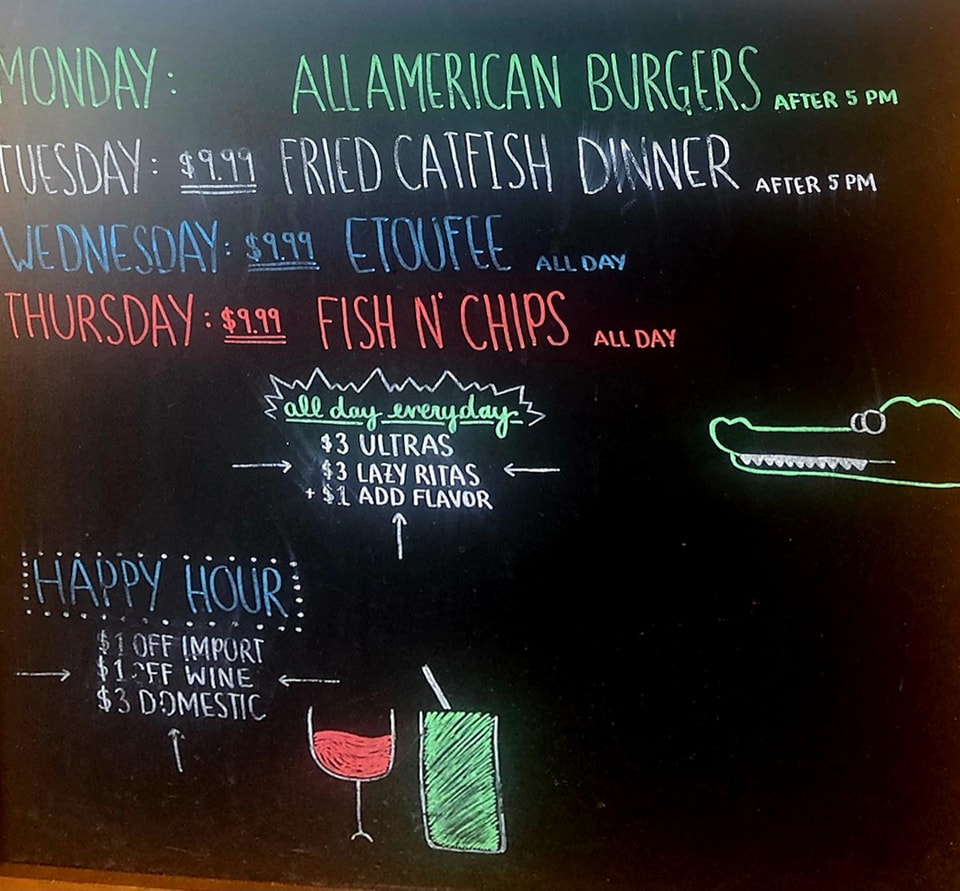 MONDAY: ALL AMERICAN BURGERS AFTER 5 PM
TUESDAY: $9.99 FRIED CATFISH DINNER AFTER 5 PM
WEDNESDAY: $9.99 ETOUFEE ALL DAY
THURSDAY: $9.99 FISH N' CHIPS ALL DAY
all day everyday
$3 ULTRAS
$3 LAZY RITAS
+ $1 ADD FLAVOR
HAPPY HOUR
$1 OFF IMPORT
$1 OFF WINE
$3 DOMESTIC